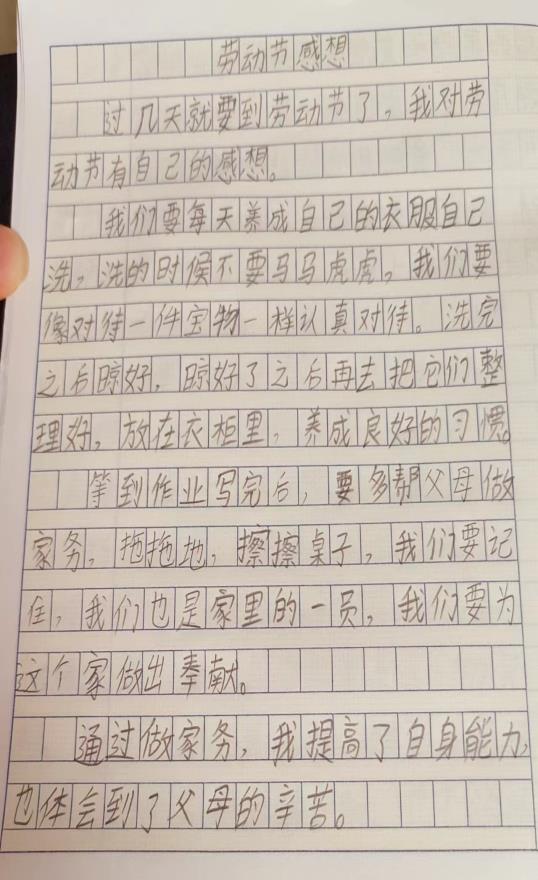 劳动节感想
过几天就要到劳动节了，我对劳
动节有自己的感想。
我们要每天养成自己的衣服自己
洗，洗的时候不要马马虎虎，我们要
像对待一件宝物一样认真对待。洗完
之后晾好，晾好了之后再去把它们整
理好，放在衣柜里，养成良好的习惯。
等到作业写完后，要多帮父母做
家务，拖拖地，擦擦桌子，我们要记
住，我们也是家里的一员，我们要为
这个家做出奉献。
通过做家务，我提高了自身能力，
也体会到了父母的辛苦。